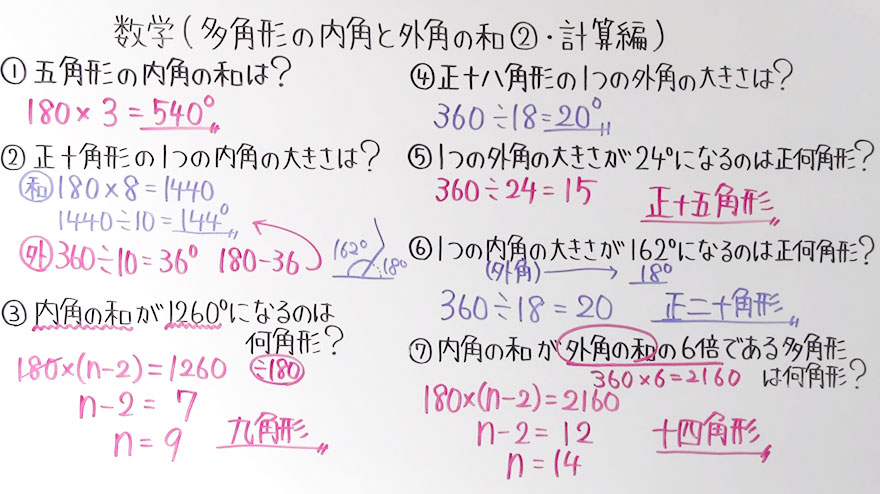 数学(多角形の内角と外角の和②・計算編)
①五角形の内角の和は?
180×3=540°
②正十角形の1つの内角の大きさは?
和 180×8=1440
1440÷10=144°
外 360÷10=36° 180-36
162° 18°
③内角の和が1260°になるのは
何角形?
180×(n-2)=1260 ÷180
n-2=7
n=9 九角形
④正十八角形の1つの外角の大きさは?
360÷18=20°
⑤1つの外角の大きさが24°になるのは正何角形?
360÷24=15 正十五角形
⑥1つの内角の大きさが162°になるのは正何角形?
(外角) → 18°
360÷18=20 正二十角形
⑦内角の和が外角の和の6倍である多角形
360×6=2160 は何角形?
180×(n-2)=2160
n-2=12 十四角形
n=14